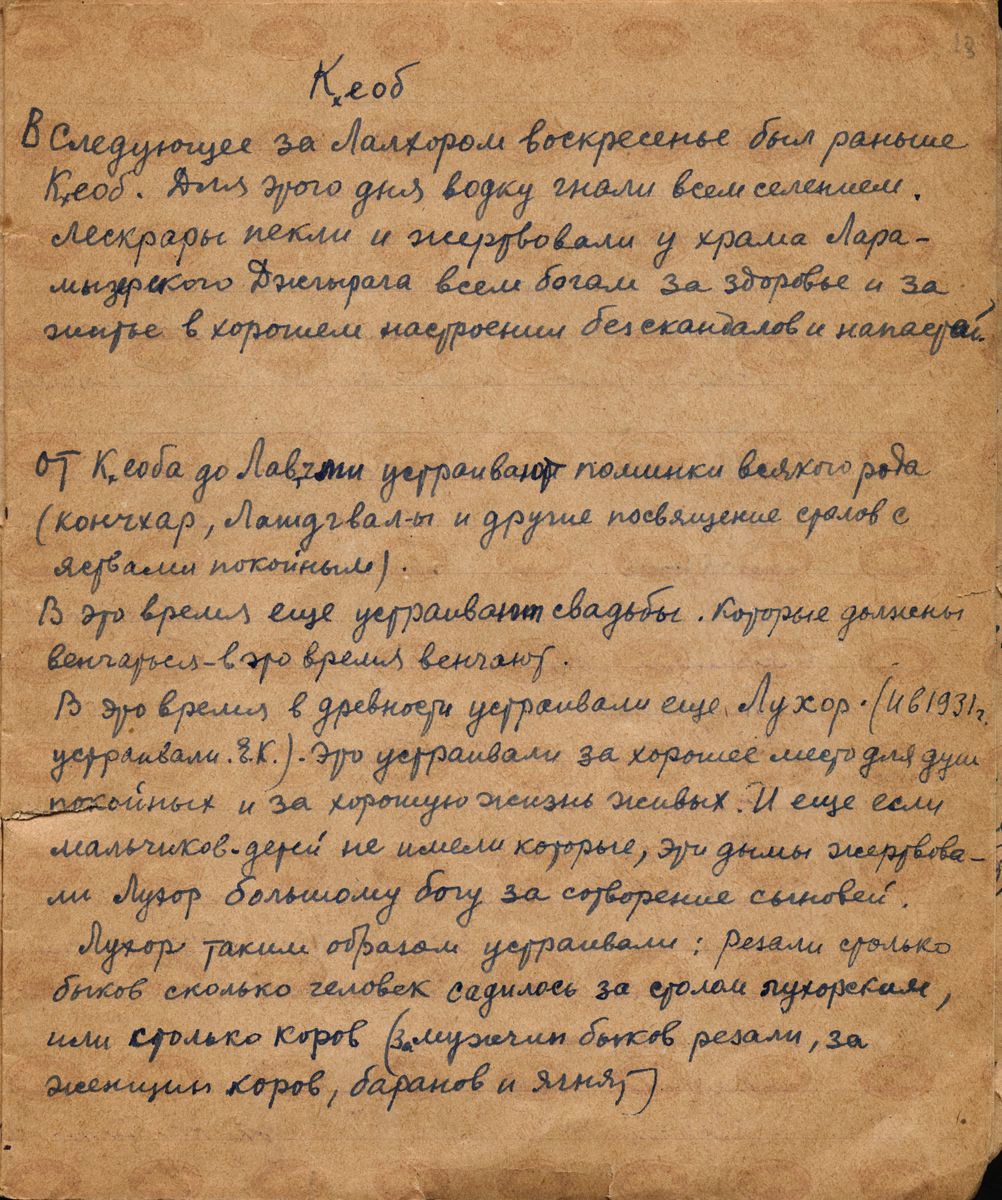 13
Кₓеоб
В следующее за Лалхором воскресенье был раньше
Кₓеоб. Для этого дня водку гнали всем селением.
Лескрары пекли и жертвовали у храма Лара-
Джгырага всем богам за здоровье и за
житье в хорошем настроении без скандалов и напастей.
от Кₓеоба до устраивают поминки всякого рода
(кончхар, Лашдгвал-ы и другие посвящение столов с
яствами покойным).
В это время еще устраивают свадьбы. Которые должны
венчаться – в это время венчают.
В это время в древности устраивали еще Лухор. (И в 1931 г.
устраивали. Е.К.). Это устраивали за хорошее место для душ
покойных и за хорошую жизнь живых. И еще если
мальчиков-детей не имели которые, эти дымы жертвова-
ли Лухор большому богу за сотворение сыновей.
Лухор таким образом устраивали: резали столько
быков сколько человек садилось за столом лухорским,
или столько коров (за мужчин быков резали, за
женщин коров, баранов и ягнят)